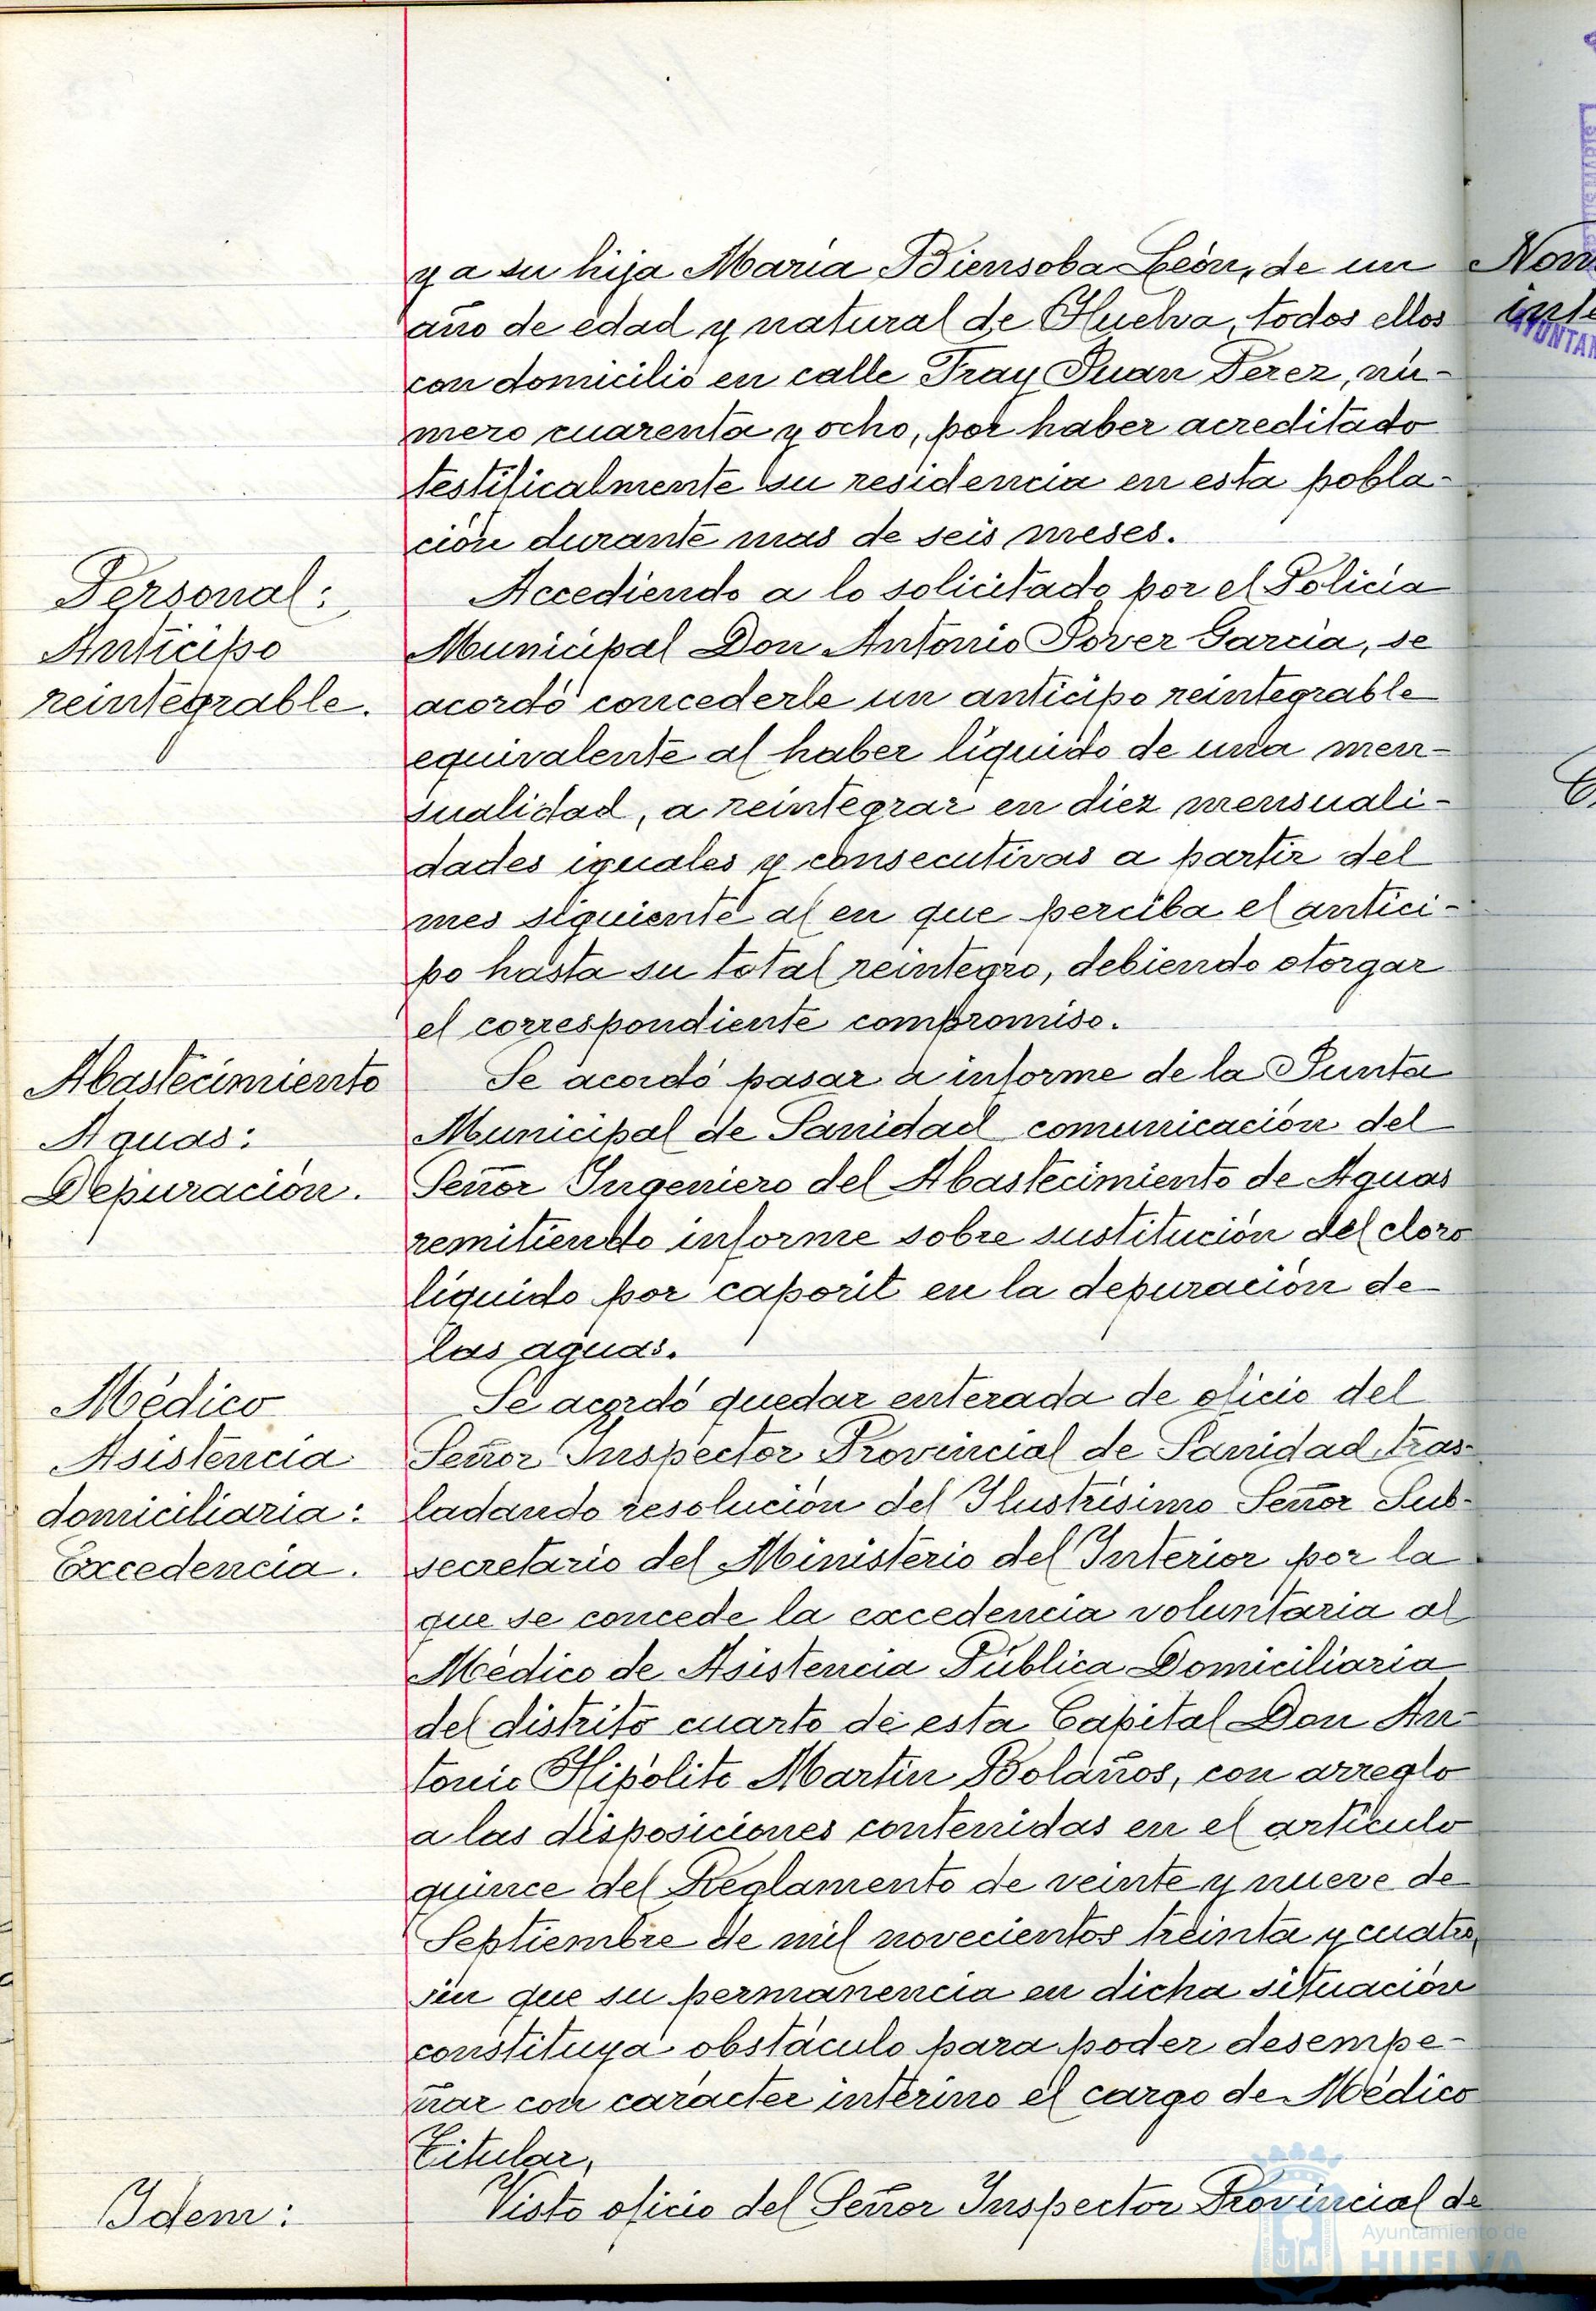 y a su hija María Biensoba León, de un
año de edad y natural de Huelva, todos ellos
con domicilio en calle Fray Juan Perez, nú-
mero cuarenta y ocho, por haber acreditado
testificalmente su residencia en esta pobla-
ción durante mas de seis meses.
Personal:
Anticipo
reintegrable.
Accediendo a lo solicitado por el Policía
Municipal Don Antonio Pover García, se
acordó concederle un anticipo reintegrable
equivalente al haber líquido de una men-
sualidad, a reintegrar en diez mensuali-
dades iguales y consecutivas a partir del
mes siguiente al en que perciba el antici-
po hasta su total reintegro, debiendo otorgar
el correspondiente compromiso.
Abastecimiento
Aguas:
Depuración.
Se acordó pasar a informe de la Junta
Municipal de Sanidad comunicación del
Señor Ingeniero del Abastecimiento de Aguas
remitiendo informe sobre sustitución del cloro
líquido por caporit en la depuración de
las aguas.
Médico
Asistencia
domiciliaria:
Excedencia.
Se acordó quedar enterada de oficio del
Señor Inspector Provincial de Sanidad tras-
ladando resolución del Ilustrísimo Señor Sub-
secretario del Ministerio del Interior por la
que se concede la excedencia voluntaria al
Médico de Asistencia Pública Domiciliaria
del distrito cuarto de esta Capital Don An-
tonio Hipólito Martín Bolaños, con arreglo
a las disposiciones contenidas en el artículo
quince del Reglamento de veinte y nueve de
Septiembre de mil novecientos treinta y cuatro,
sin que su permanencia en dicha situación
constituya obstáculo para poder desempe-
ñar con carácter interino el cargo de Médico
Titular.
Idem:
Visto oficio del Señor Inspector Provincial de
Ayuntamiento de
HUELVA